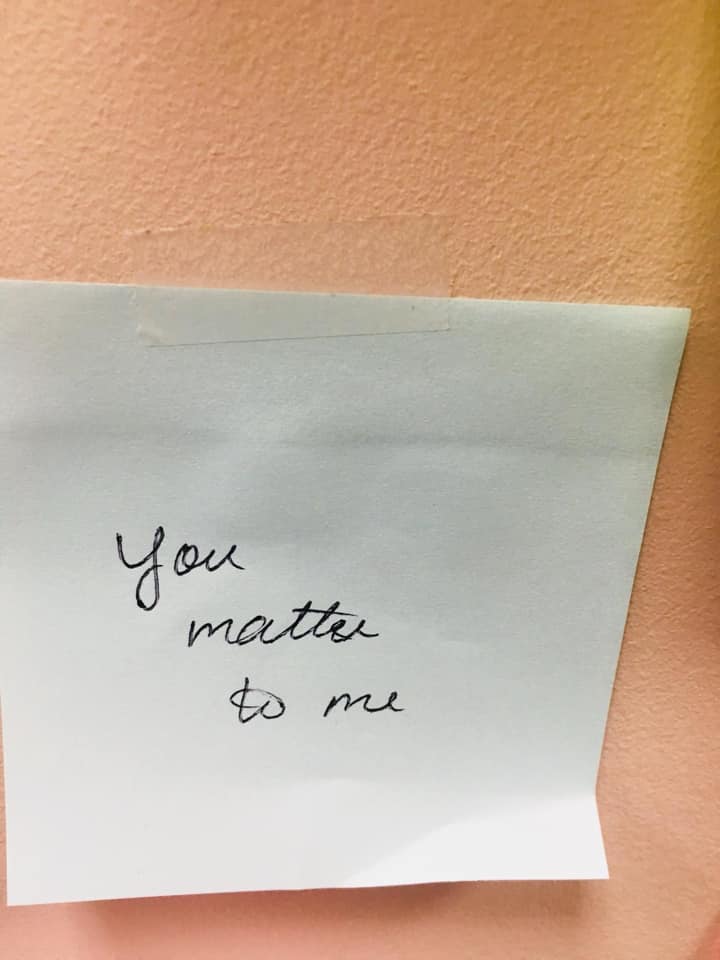 You
matter
to me